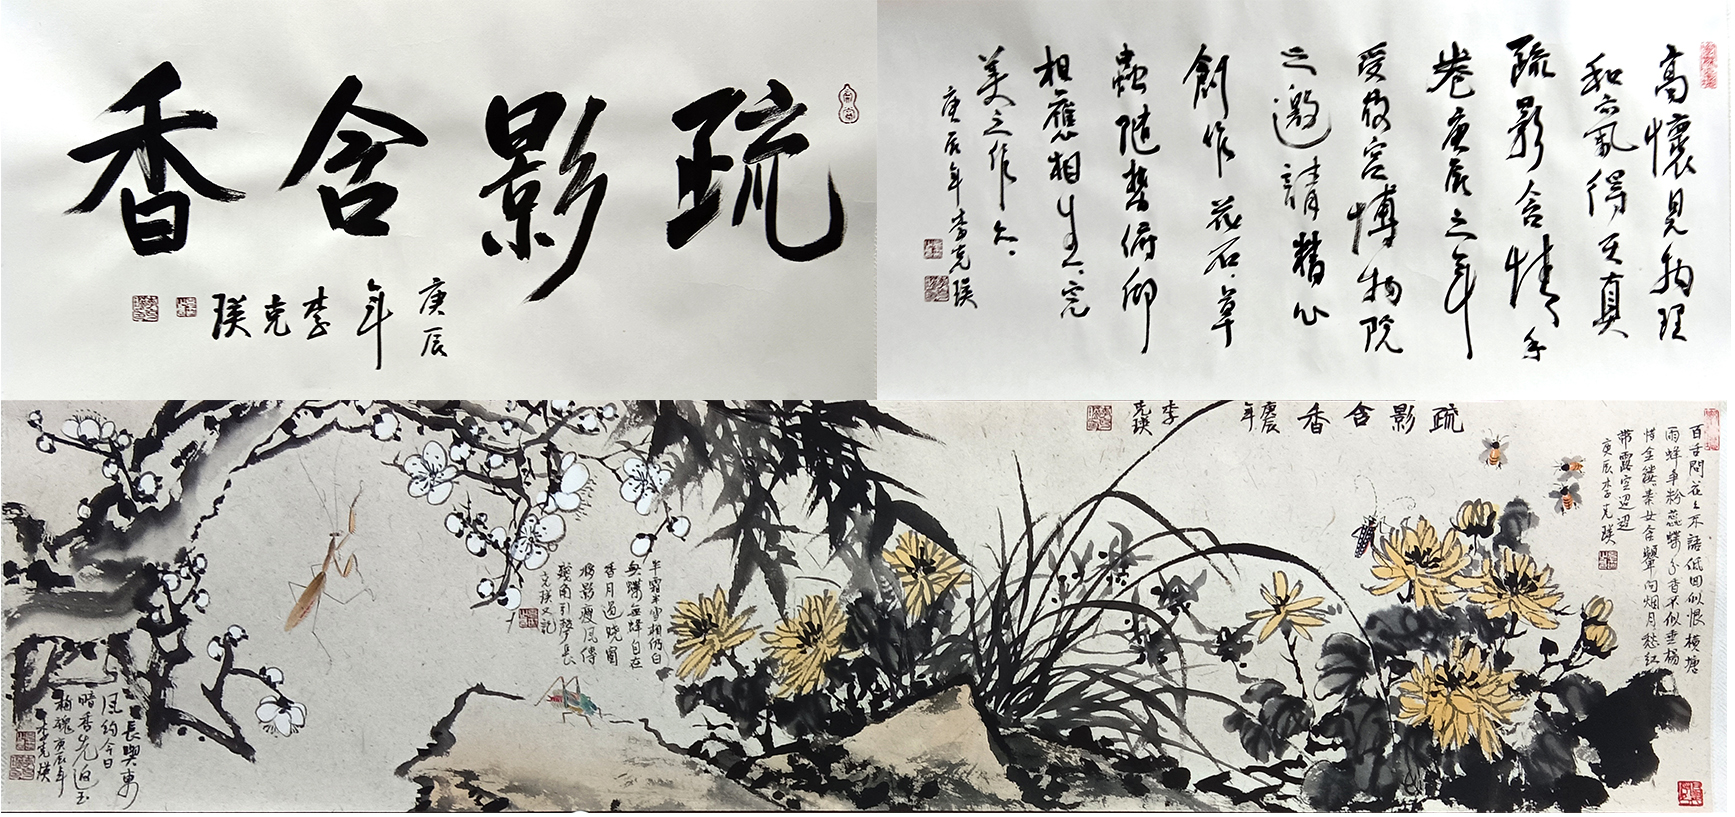 疏影含香
庚辰
年李克瑛
高懷見物理
和氣得天真
疏影含情手
卷庚辰之年
受故宫博物院
之邀請精心
創作花石草
蟲隨势俯仰
相應相生完
美之作也
庚辰年李克瑛
疏影含香
庚辰
年
李
克瑛
百舌問花花不語低回似恨橫塘
雨蜂爭粉蕊蝶分香不似垂楊
惜金縷柔女含顰向烟月愁紅
帶露空迢迢
庚辰李克瑛
半霜半雪相仍白
無蝶無蜂自在
香月過曉窗
將影瘦風傳
殘角引愁長
克瑛又記
長與東
風約今日
暗香先返玉
梅魂庚辰年
李克瑛